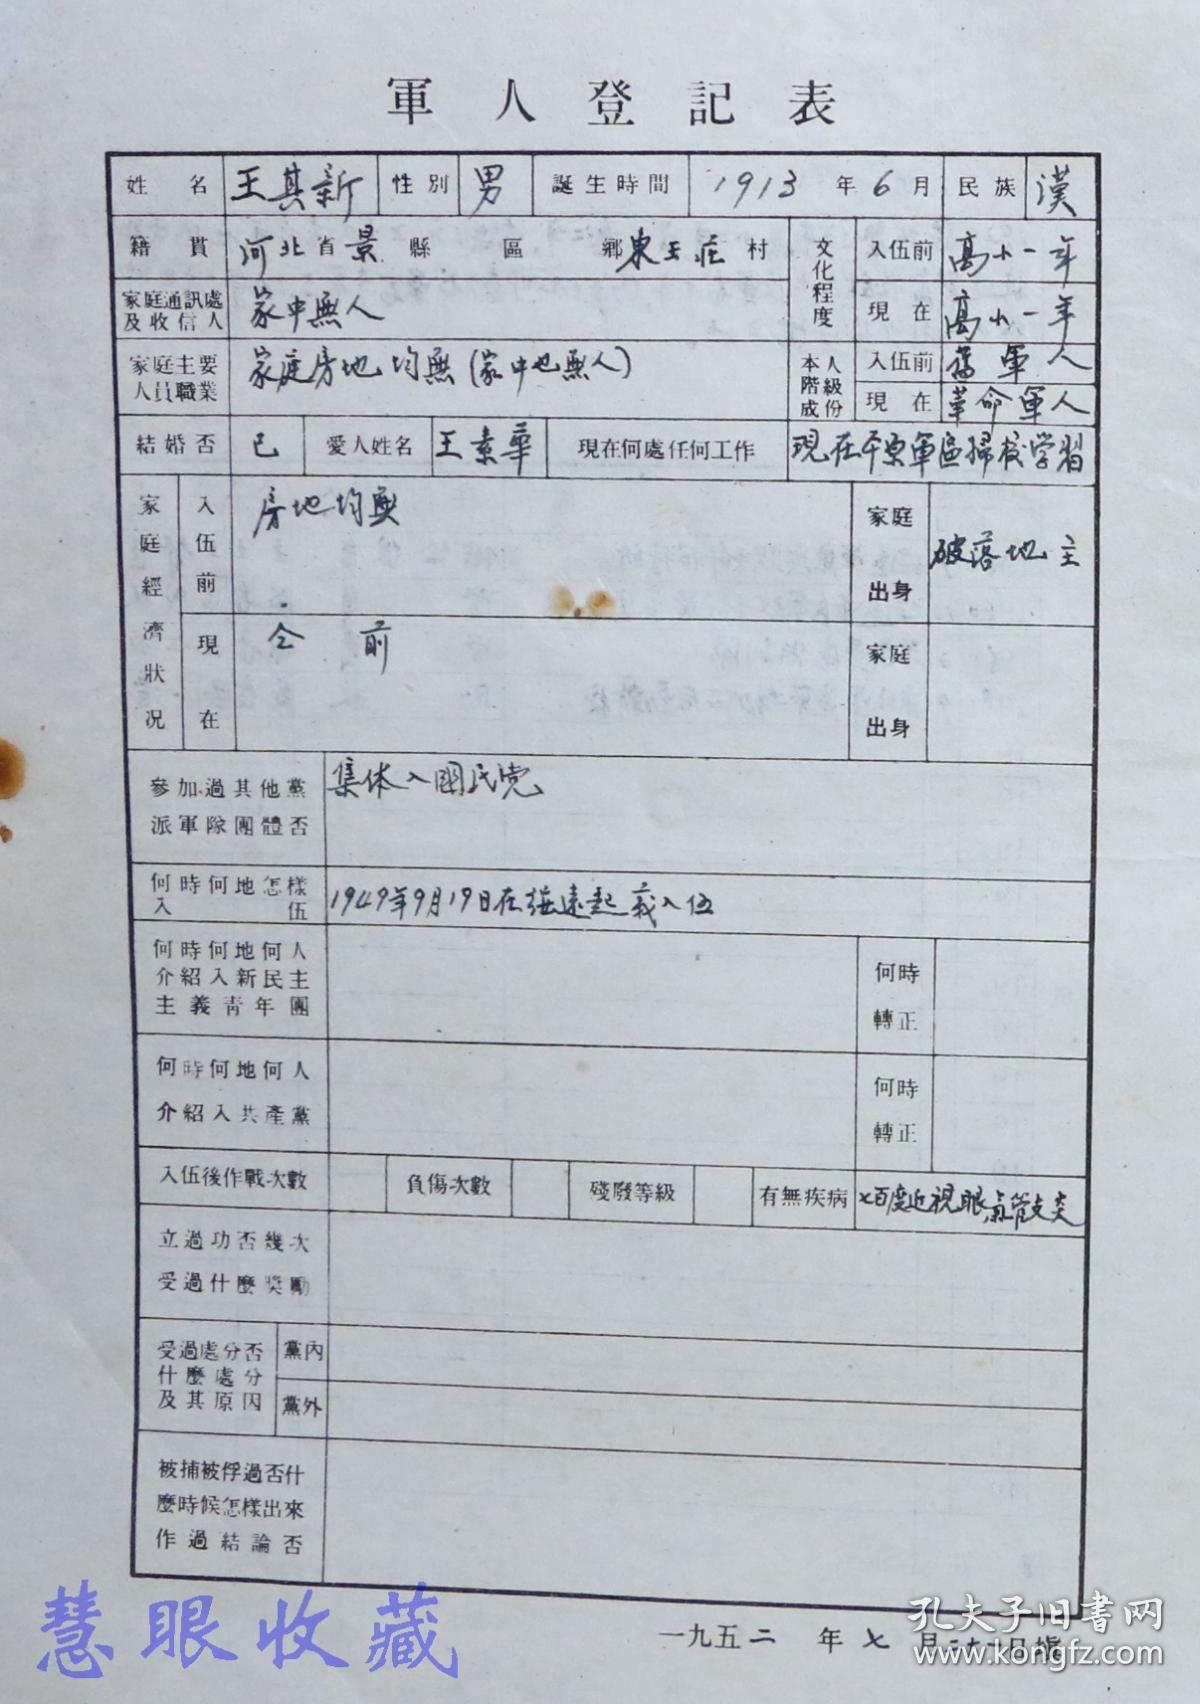 軍人登記表
姓名 王其新 性別 男 誕生時間 1913年6月 民族 漢
籍貫 河北省景縣 區 鄉東王莊村 文化程度 入伍前 高小一年
家庭通訊處及收信人 家中無人 現在 高小一年
家庭主要人員職業 家庭房地均無(家中也無人) 本人階級成份 入伍前 舊軍人
現在 革命軍人
結婚否 已 愛人姓名 王素華 現在何處任何工作 現在平原軍區婦校学習
家庭經濟狀況 入伍前 房地均無 家庭出身 破落地主
現在 仝前 家庭出身
參加過其他黨派軍隊團體否 集体入國民党
何時何地怎樣入伍 1949年9月19日在绥远起義入伍
何時何地何人介紹入新民主主義青年團 何時轉正
何時何地何人介紹入共產黨 何時轉正
入伍後作戰次數 負傷次數 殘廢等級 有無疾病 七百度近視眼氣管支炎
立過功否幾次受過什麼獎勵
受過處分否什麼處分及其原因 黨內
黨外
被捕被俘過否什麼時候怎樣出來作過結論否
一九五二年七月 日填
慧眼收藏
孔夫子旧书网
www.kongfz.com